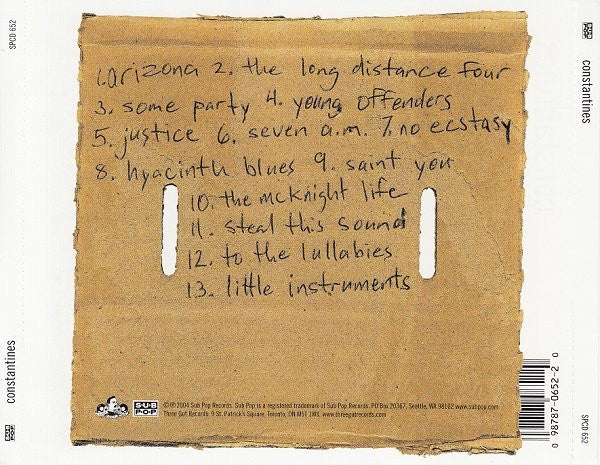 SPCD 652
constantines
1. arizona 2. the long distance four
3. some party 4. young offenders
5. justice 6. seven a.m. 7. no ecstasy
8. hyacinth blues 9. saint you
10. the mcknight life
11. steal this sound
12. to the lullabies
13. little instruments
SUB POP
©℗ 2004 Sub Pop Records. Sub Pop is a registered trademark of Sub Pop Records. PO Box 20367, Seattle, WA 98102 www.subpop.com
Three Gut Records: 9 St. Patrick's Square, Toronto, ON M5T 1W8. www.threegutrecords.com
constantines
0 98787-0652-2 0
SPCD 652